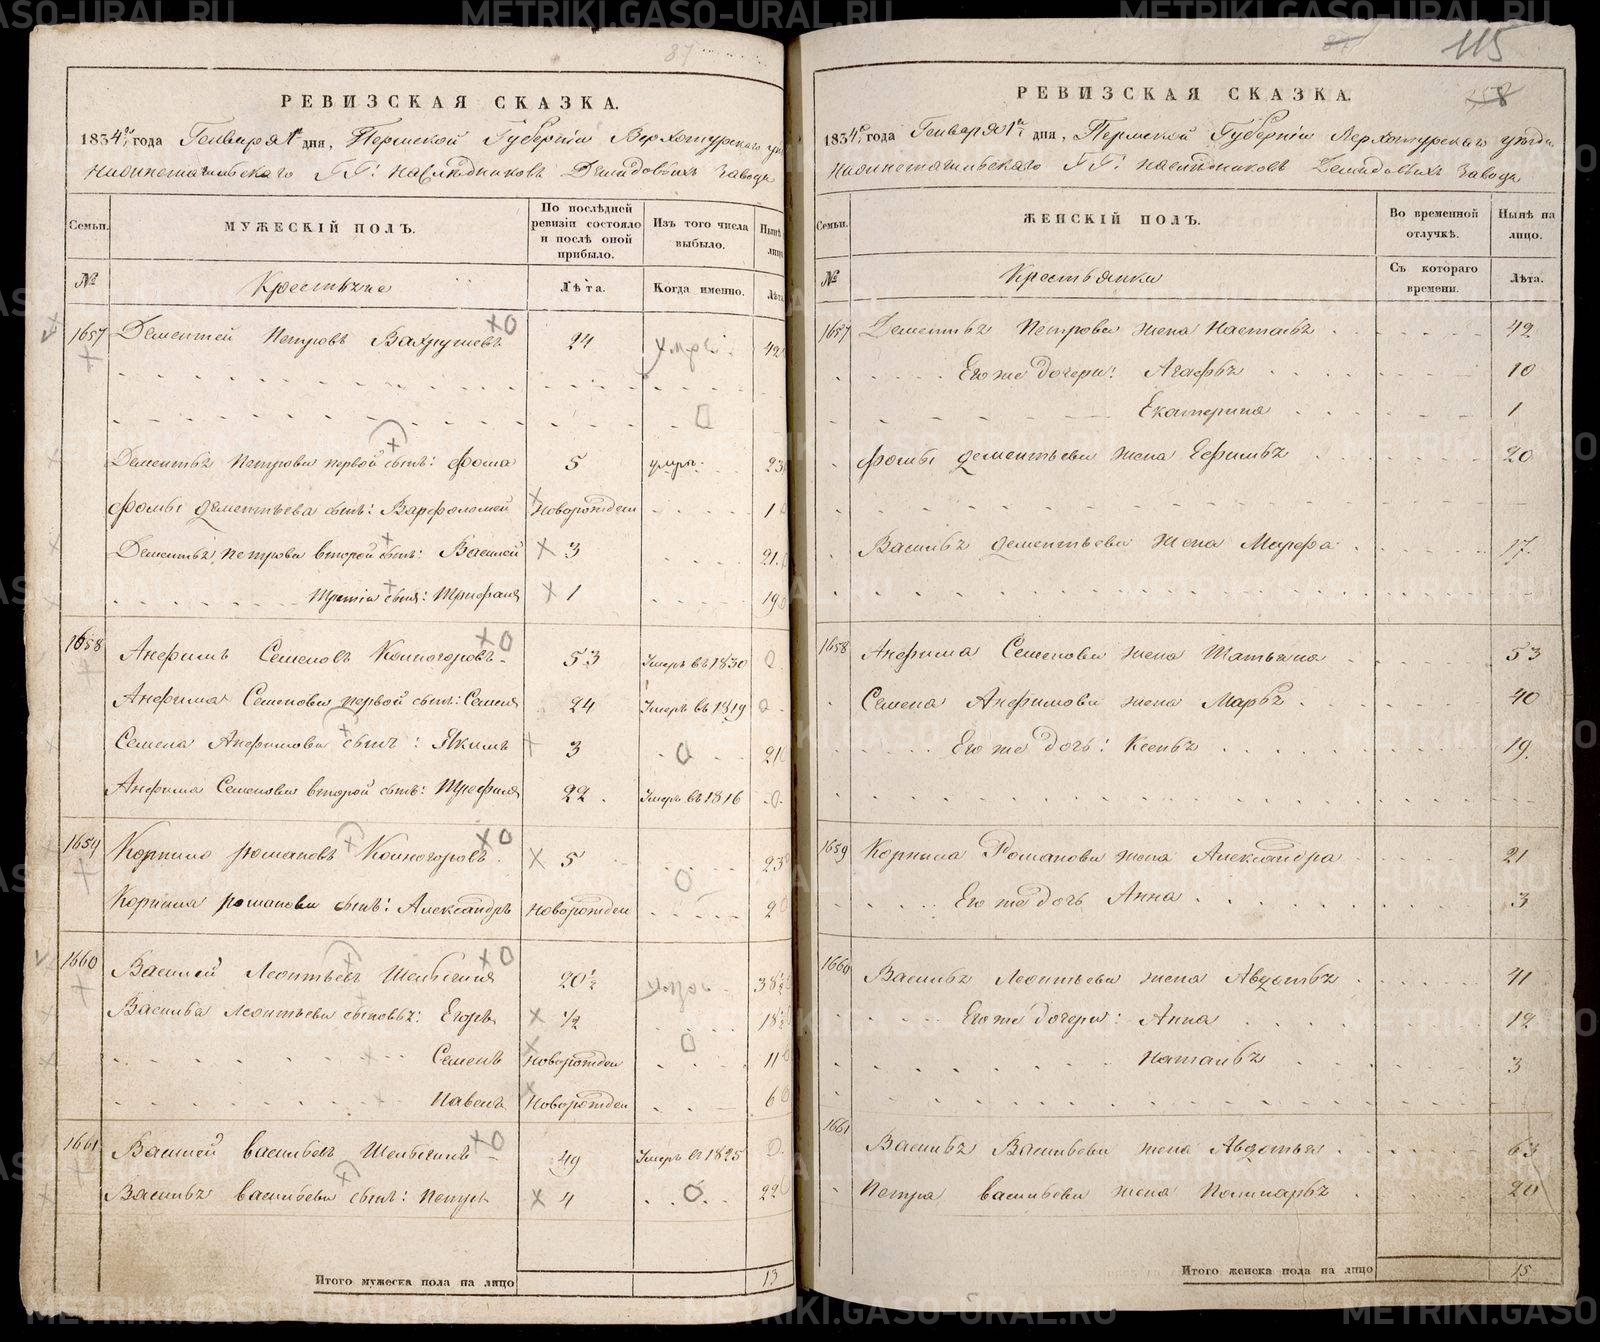 115
РЕВИЗСКАЯ СКАЗКА.
1834го года Генваря 1го дня, Пермской Губерніи Верхотурскаго
Нижнетагильскаго ГГ: Наследниковъ Демидовыхъ Завода
Семьи. МУЖЕСКІЙ ПОЛЪ. По послѣдней ревизіи состояло и послѣ оной прибыло. Изъ того числа выбыло. Нынѣ на лицо
№ Крестьяне Лѣта. Когда именно. Лѣта
1657 Дементей Петровъ Вахрушевъ 24 умре 42
Дементья Петрова первой сынъ: Фома 5 умре 23
Фомы Дементьева сынъ: Варфоломей Новорожден 1
Дементья Петрова второй сынъ: Василей 3 21
третій сынъ: Трифанъ 1 19
1658 Анфимъ Семеновъ Комногоровъ 53 Умеръ въ 1830 0
Анфима Семенова первой сынъ: Семенъ 24 Умеръ въ 1819 0
Семена Анфимова сынъ: Якимъ 3 0 21
Анфима Семенова второй сынъ: Трефилъ 22 Умеръ въ 1816 0
1659 Корнило Романовъ Комногоровъ 5 23
Корнила Романова сынъ: Александръ Новорожден 2
1660 Василей Леонтьевъ 20½ 38½
Василья Леонтьева сыновья: Егоръ ½ 18½
Семенъ Новорожден 11
Павелъ Новорожден 6
1661 Василей Васильевъ 49 Умеръ въ 1825 0
Василья Васильева сынъ: Петръ 4 0 22
Итого мужеска пола на лицо 13
РЕВИЗСКАЯ СКАЗКА.
1834го года Генваря 1го дня, Пермской Губерніи Верхотурскаго уезда
Нижнетагильскаго ГГ: Наследниковъ Демидовыхъ Завода
Семьи. ЖЕНСКІЙ ПОЛЪ. Во временной отлучкѣ. Нынѣ на лицо.
№ Крестьянки Съ котораго времени. Лѣта.
1657 Дементья Петрова жена Настасья 42
Его же дочери: Агафья 10
Екатерина 1
Фомы Дементьева жена Ефимья 20
Василья Дементьева жена Марфа 17
1658 Анфима Семенова жена Татьяна 53
Семена Анфимова жена Марья 40
Его же дочь: Ксенья 19
1659 Корнила Романова жена Александра 21
Его же дочь Анна 3
1660 Василья Леонтьева жена Авдотья 41
Его же дочери: Анна 12
Наталья 3
1661 Василья Васильева жена Авдотья 63
Петра Васильева жена 20
Итого женска пола на лицо 15
METRIKI.GASO-URAL.RU